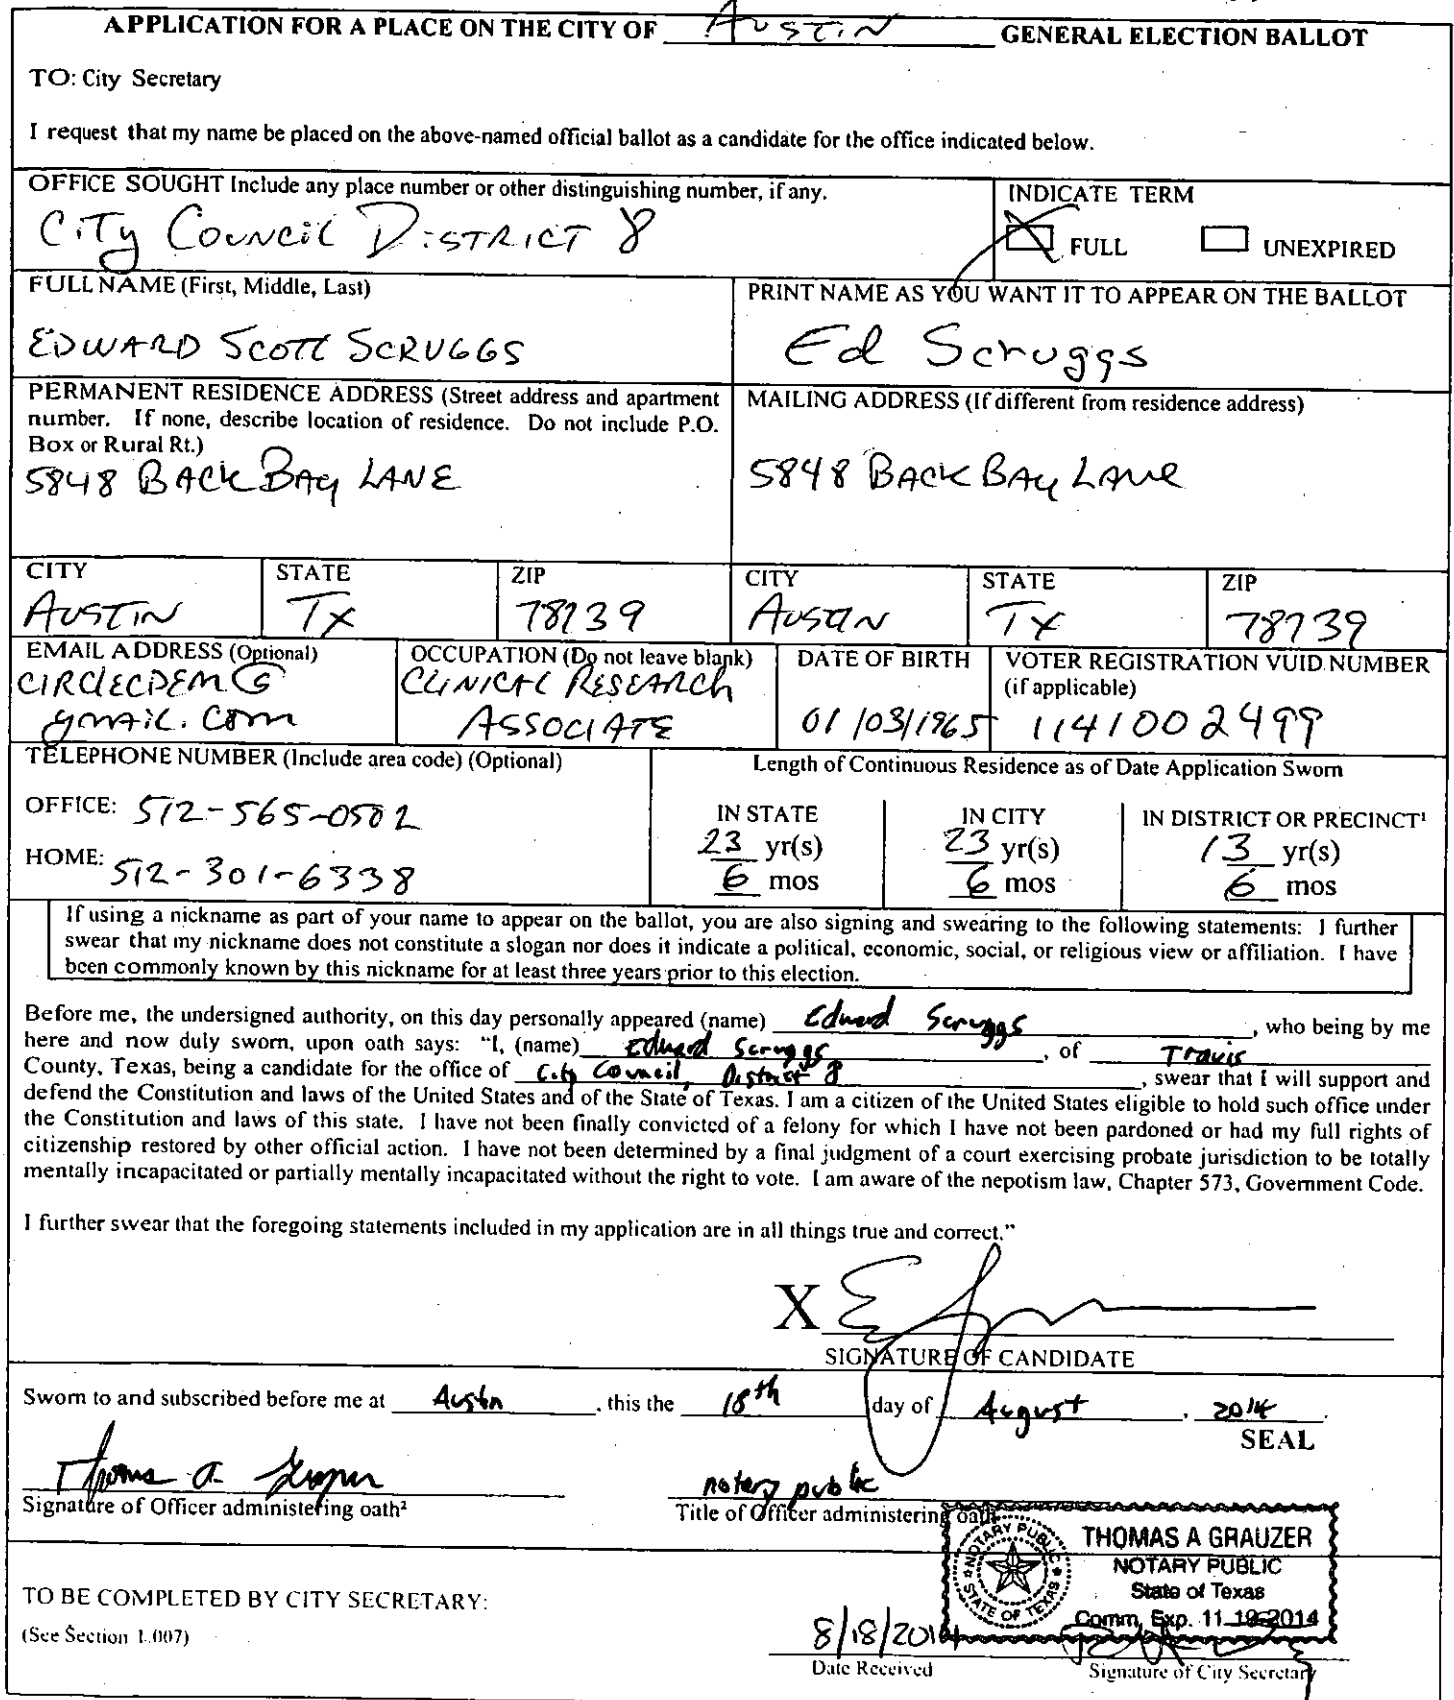 APPLICATION FOR A PLACE ON THE CITY OF AUSTIN GENERAL ELECTION BALLOT
TO: City Secretary
I request that my name be placed on the above-named official ballot as a candidate for the office indicated below.
OFFICE SOUGHT Include any place number or other distinguishing number, if any.
CiTy COUNCiL DiSTRICT 8
INDICATE TERM
X FULL UNEXPIRED
FULL NAME (First, Middle, Last)
EDWARD SCOTT SCRUGGS
PRINT NAME AS YOU WANT IT TO APPEAR ON THE BALLOT
Ed Scruggs
PERMANENT RESIDENCE ADDRESS (Street address and apartment
number. If none, describe location of residence. Do not include P.O.
Box or Rural Rt.)
5848 BACK BAY LANE
MAILING ADDRESS (If different from residence address)
5848 BACK BAY LANE
CITY STATE ZIP CITY STATE ZIP
AUSTIN TX 78739 AUSTIN TX 78739
EMAIL ADDRESS (Optional)
CIRCLECDEM@
gmAiL.com
OCCUPATION (Do not leave blank)
CLINICAL RESEARCH
ASSOCIATE
DATE OF BIRTH
01/03/1965
VOTER REGISTRATION VUID NUMBER
(if applicable)
1141002499
TELEPHONE NUMBER (Include area code) (Optional)
OFFICE: 512-565-0502
HOME: 512-301-6338
Length of Continuous Residence as of Date Application Sworn
IN STATE IN CITY IN DISTRICT OR PRECINCT¹
23 yr(s) 23 yr(s) 13 yr(s)
6 mos 6 mos 6 mos
If using a nickname as part of your name to appear on the ballot, you are also signing and swearing to the following statements: I further
swear that my nickname does not constitute a slogan nor does it indicate a political, economic, social, or religious view or affiliation. I have
been commonly known by this nickname for at least three years prior to this election.
Before me, the undersigned authority, on this day personally appeared (name) Edward Scruggs, who being by me
here and now duly sworn, upon oath says: "I, (name) Edward Scruggs, of Travis
County, Texas, being a candidate for the office of City Council, District 8, swear that I will support and
defend the Constitution and laws of the United States and of the State of Texas. I am a citizen of the United States eligible to hold such office under
the Constitution and laws of this state. I have not been finally convicted of a felony for which I have not been pardoned or had my full rights of
citizenship restored by other official action. I have not been determined by a final judgment of a court exercising probate jurisdiction to be totally
mentally incapacitated or partially mentally incapacitated without the right to vote. I am aware of the nepotism law, Chapter 573, Government Code.
I further swear that the foregoing statements included in my application are in all things true and correct."
X
SIGNATURE OF CANDIDATE
Sworn to and subscribed before me at Austin, this the 18th day of August, 2014
SEAL
Thomas A
Signature of Officer administering oath²
notary public
Title of Officer administering oath
NOTARY PUBLIC
STATE OF TEXAS
THOMAS A GRAUZER
NOTARY PUBLIC
State of Texas
Comm. Exp. 11-19-2014
TO BE COMPLETED BY CITY SECRETARY:
(See Section 1.007)
8/18/2014
Date Received
Signature of City Secretary